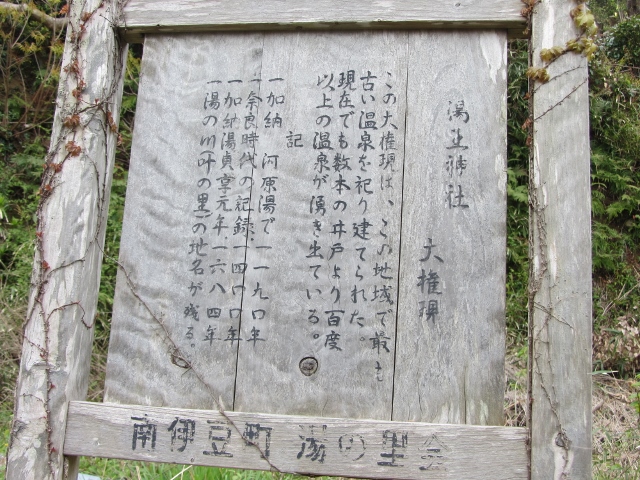 湯上神社
大権現
この大権現は、この地域で最も
古い温泉を祀り建てられた。
現在でも数本の井戸より百度
以上の温泉が湧き出ている。
記
一加納 河原湯で一一九〇年
一奈良時代の記録、
一加納湯貞享元年、一六八四年
一湯の川叶の里の地名が残る。
南伊豆町 湯の里会